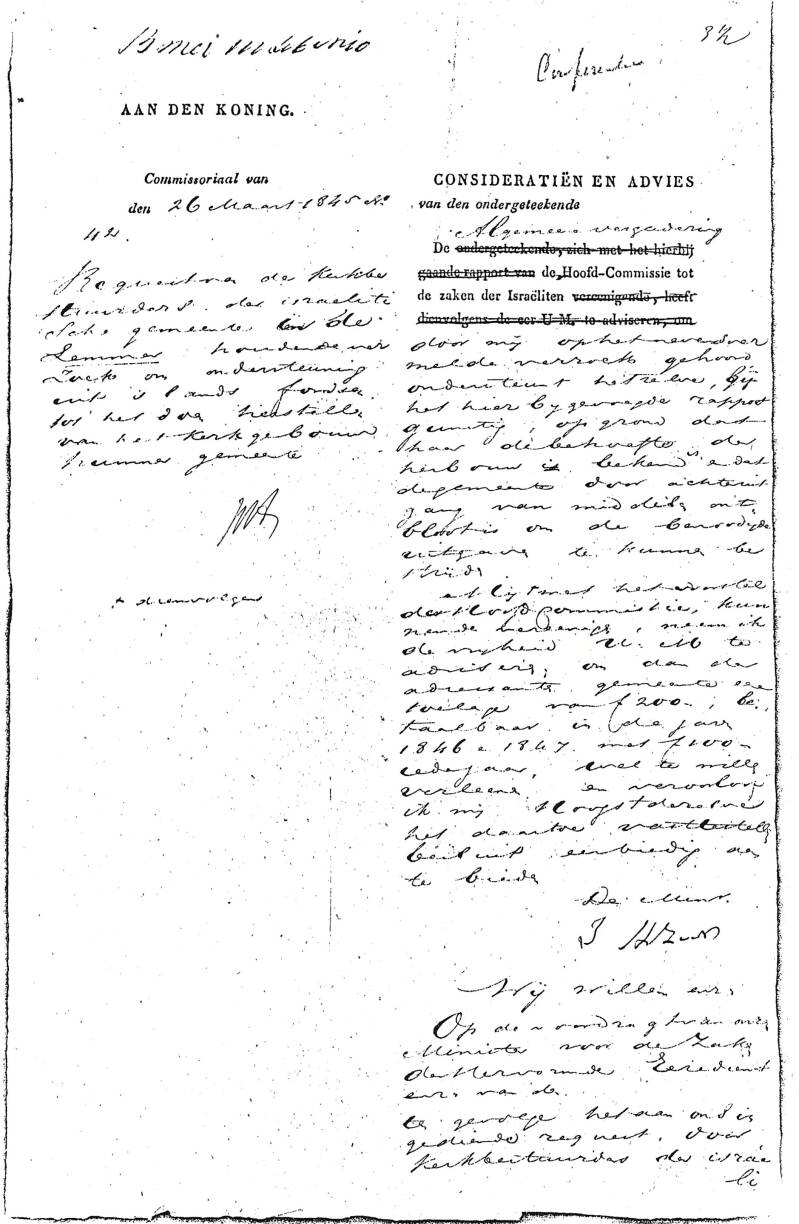 3 mei
AAN DEN KONING.
Commissoriaal van
den 26 Maart 1845 No
42.
Request van de Kerkbe
stuurders der israeliti
sche gemeente in de
Lemmer houdende ver
zoek om ondersteuning
uit 's lands fondsen
tot het doen herstellen
van het kerkgebouw
hunner gemeente
+ dienvolgens
CONSIDERATIËN EN ADVIES
van den ondergeteekende
Algemeene vergadering
De ondergeteekende, zich met het hierbij
gaande rapport van de Hoofd-Commissie tot
de zaken der Israëliten vereenigende, heeft
dienvolgens de eer U.M. te adviseren, om
door mij op het nevensver
melde verzoek gehoord
ondersteunt hetzelve, bij
het hier bygevoegde rapport
gunstig, op grond dat
haar de behoefte der
herbouw is bekend e dat
de gemeente door achteruit
gang van middelen ont
bloot is om de benoodigde
uitgave te kunnen be
strijden
met het voorstel
der Hoofdcommissie, kun
nende vereenigen, neem ik
de vrijheid U. M te
adviseren, om aan de
adressante gemeente een
toelage van f 200.-, be
taalbaar in de jaren
1846 e 1847 met f 100.-
ieder jaar, wel te willen
verleenen en veroorloof
ik mij Hoogstdezelve
het daartoe
besluit eerbiedig aan
te bieden
De Minr.
Wij Willem enz.
Op de voordragt van onze
Minister voor de Zaken
der Hervormde Eeredienst
enz van de
te gevolge het aan ons in
gediende request, door
Kerkbestuurders der israe
li